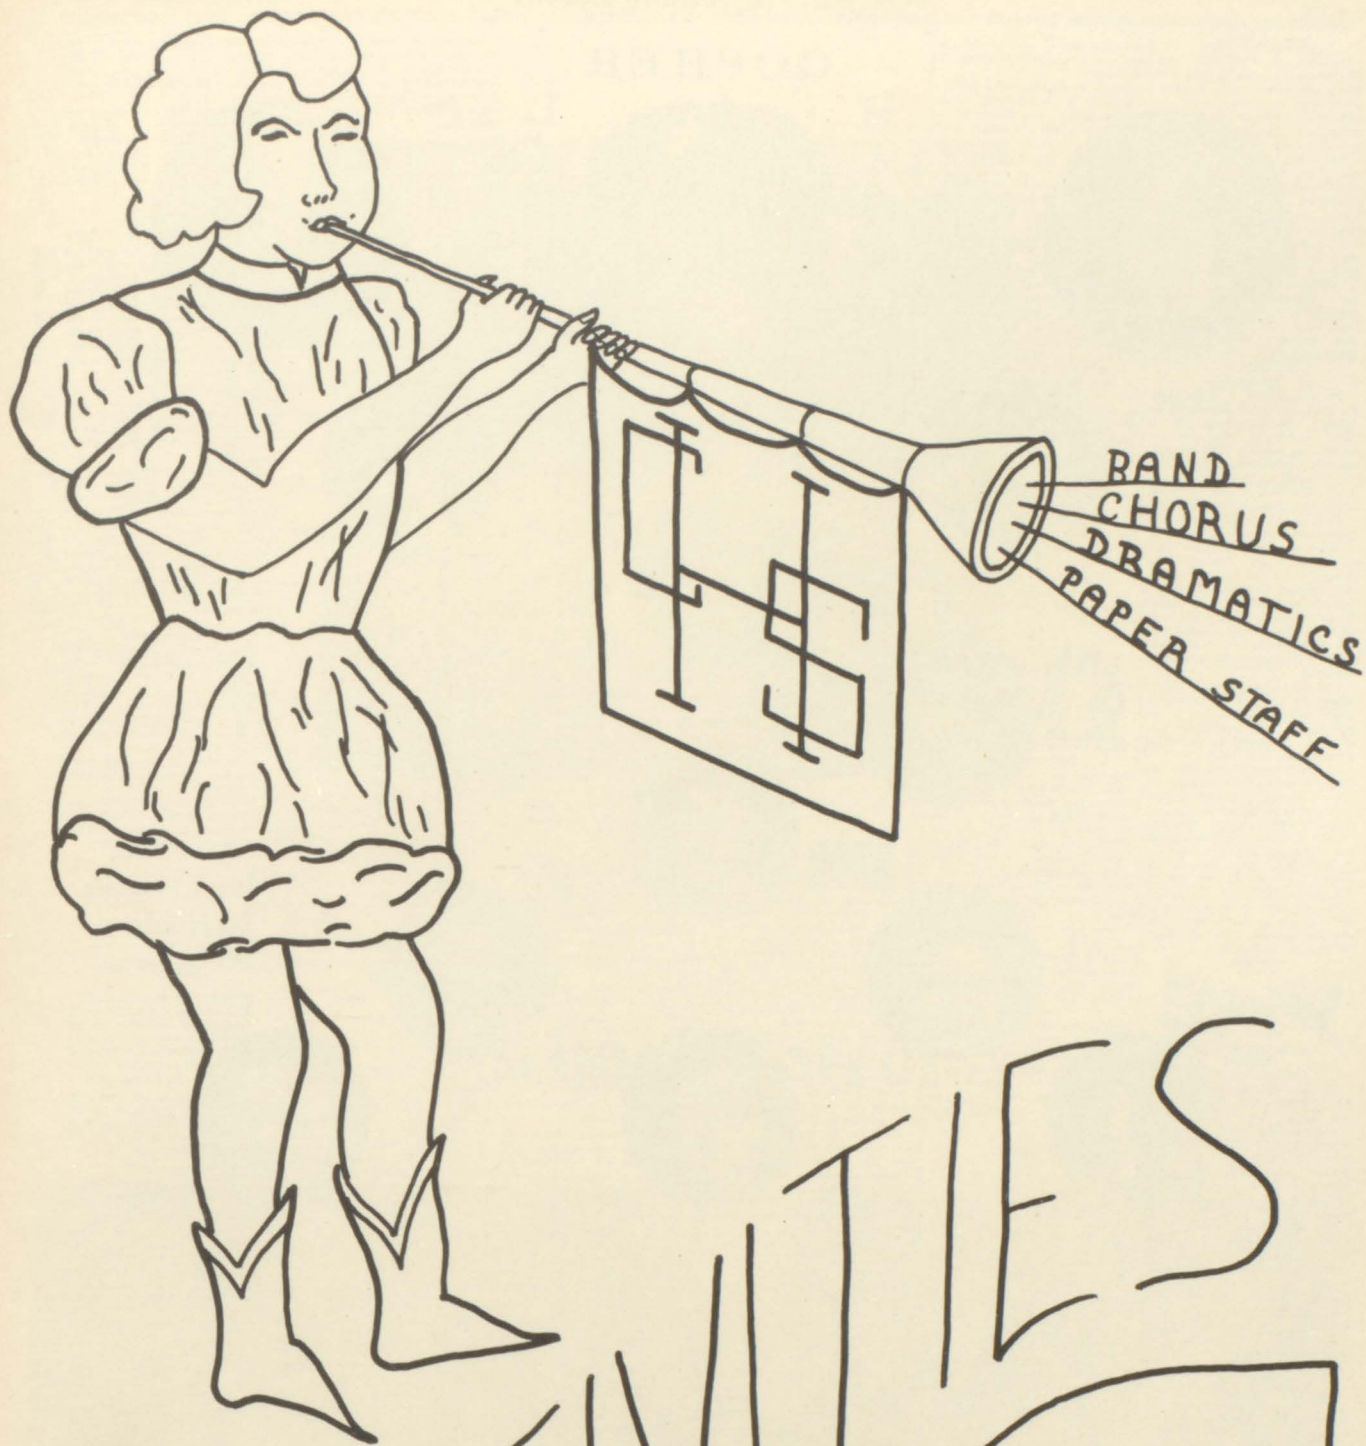 BAND
CHORUS
DRAMATICS
PAPER STAFF
CHS
IVITIES